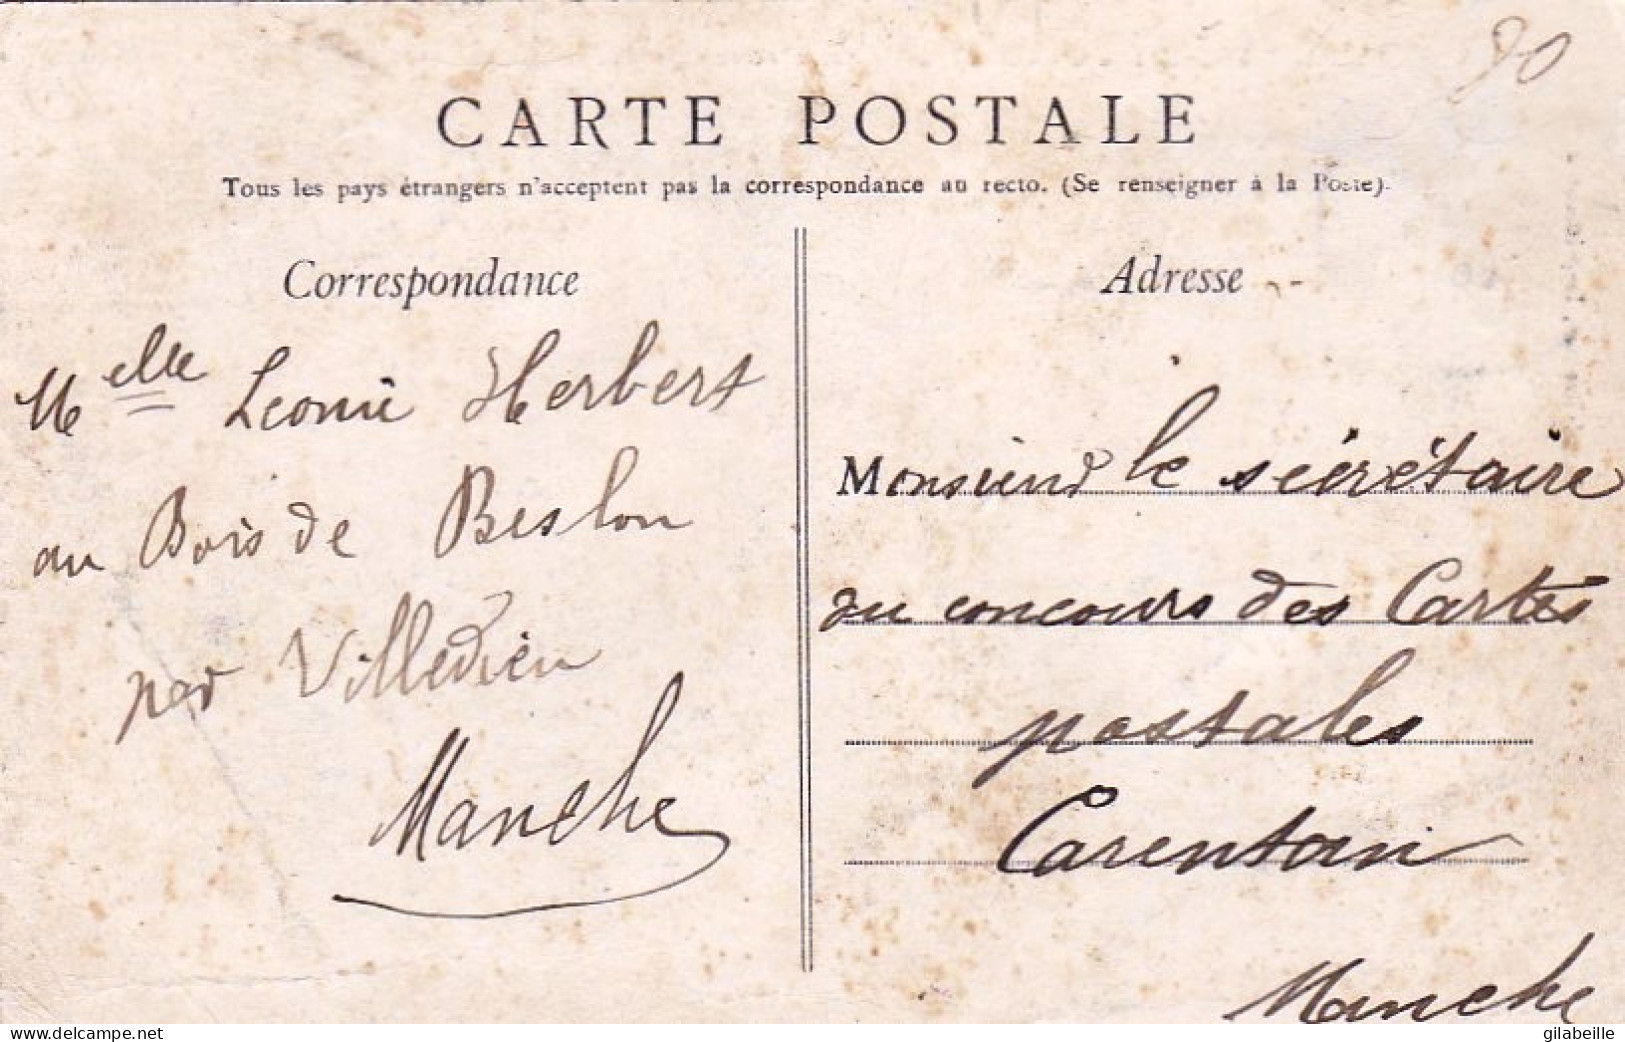 90
CARTE POSTALE
Tous les pays étrangers n'acceptent pas la correspondance au recto. (Se renseigner à la Poste).
Correspondance
Melle Léonie Herbert
au Bois de Beslon
par Villedieu
Manche
Adresse
Monsieur le sécrétaire
du concours des Cartes
postales
Carentan
Manche
delcampe.net
gilabeille